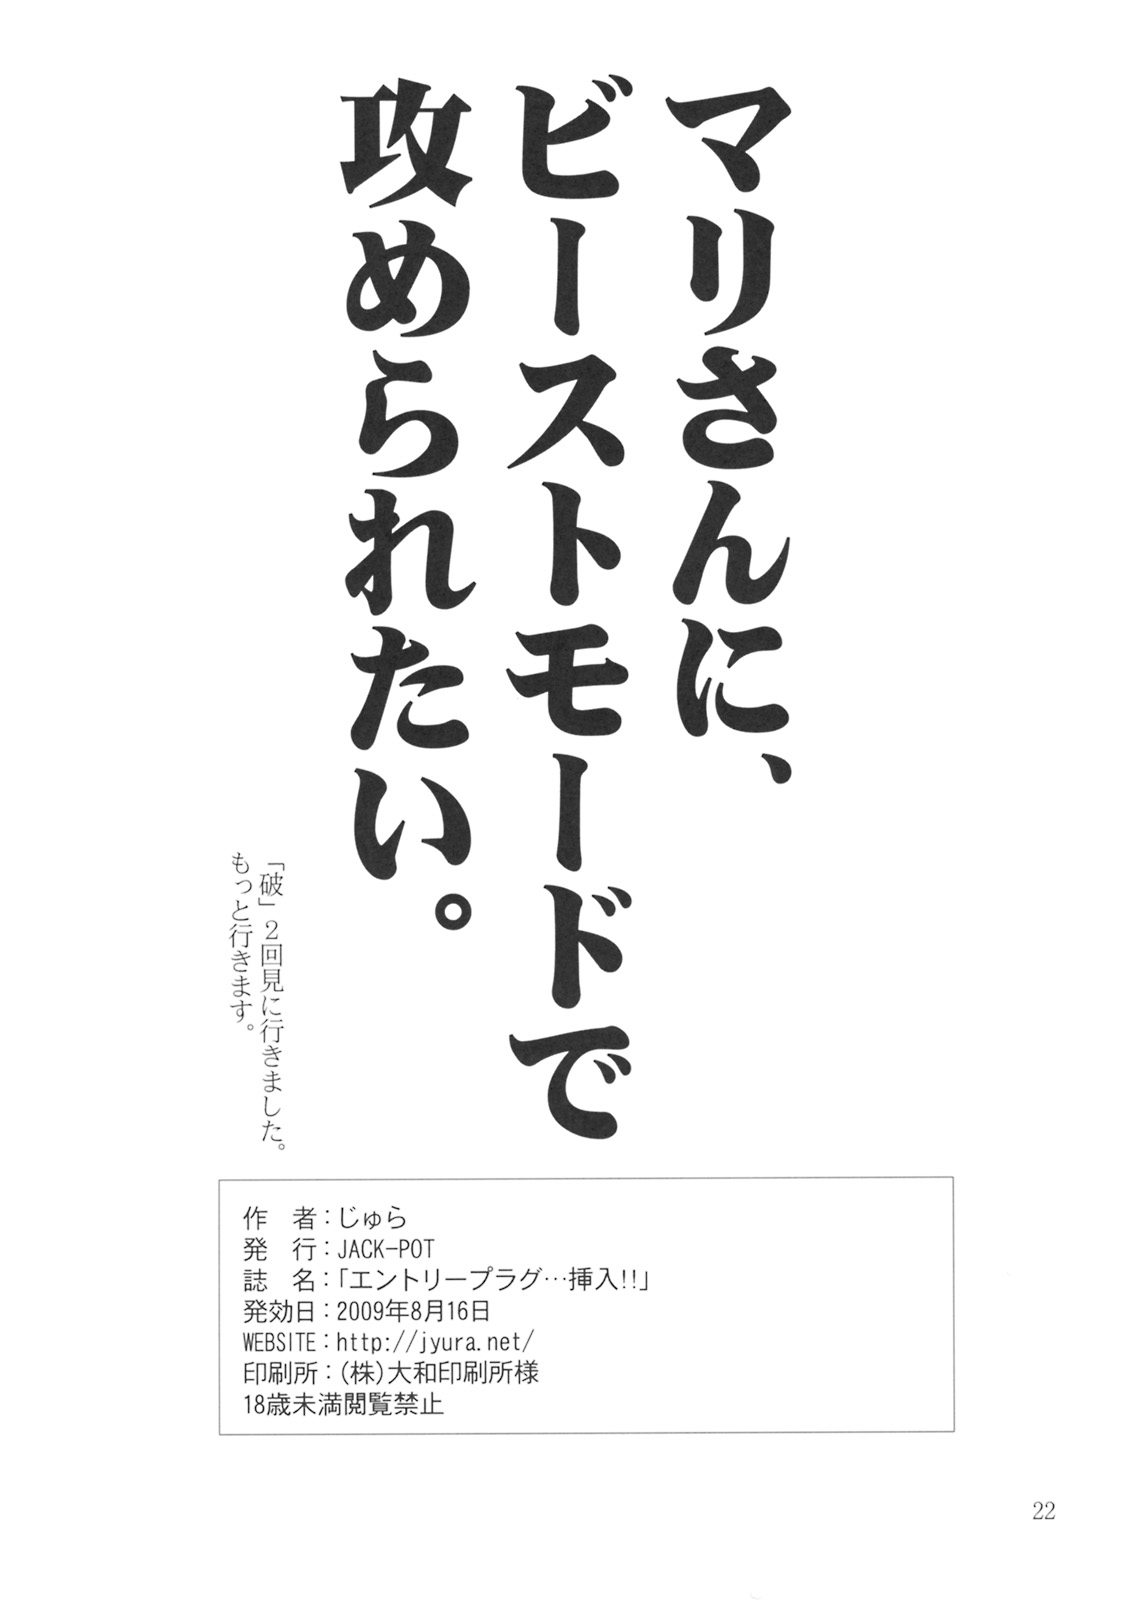 マリさんに、
ビーストモードで
攻められたい。
「破」２回見に行きました。
もっと行きます。
作　者：じゅら
発　行：JACK-POT
誌　名：「エントリープラグ…挿入!!」
発効日：2009年8月16日
WEBSITE：http://jyura.net/
印刷所：(株)大和印刷所様
18歳未満閲覧禁止
22